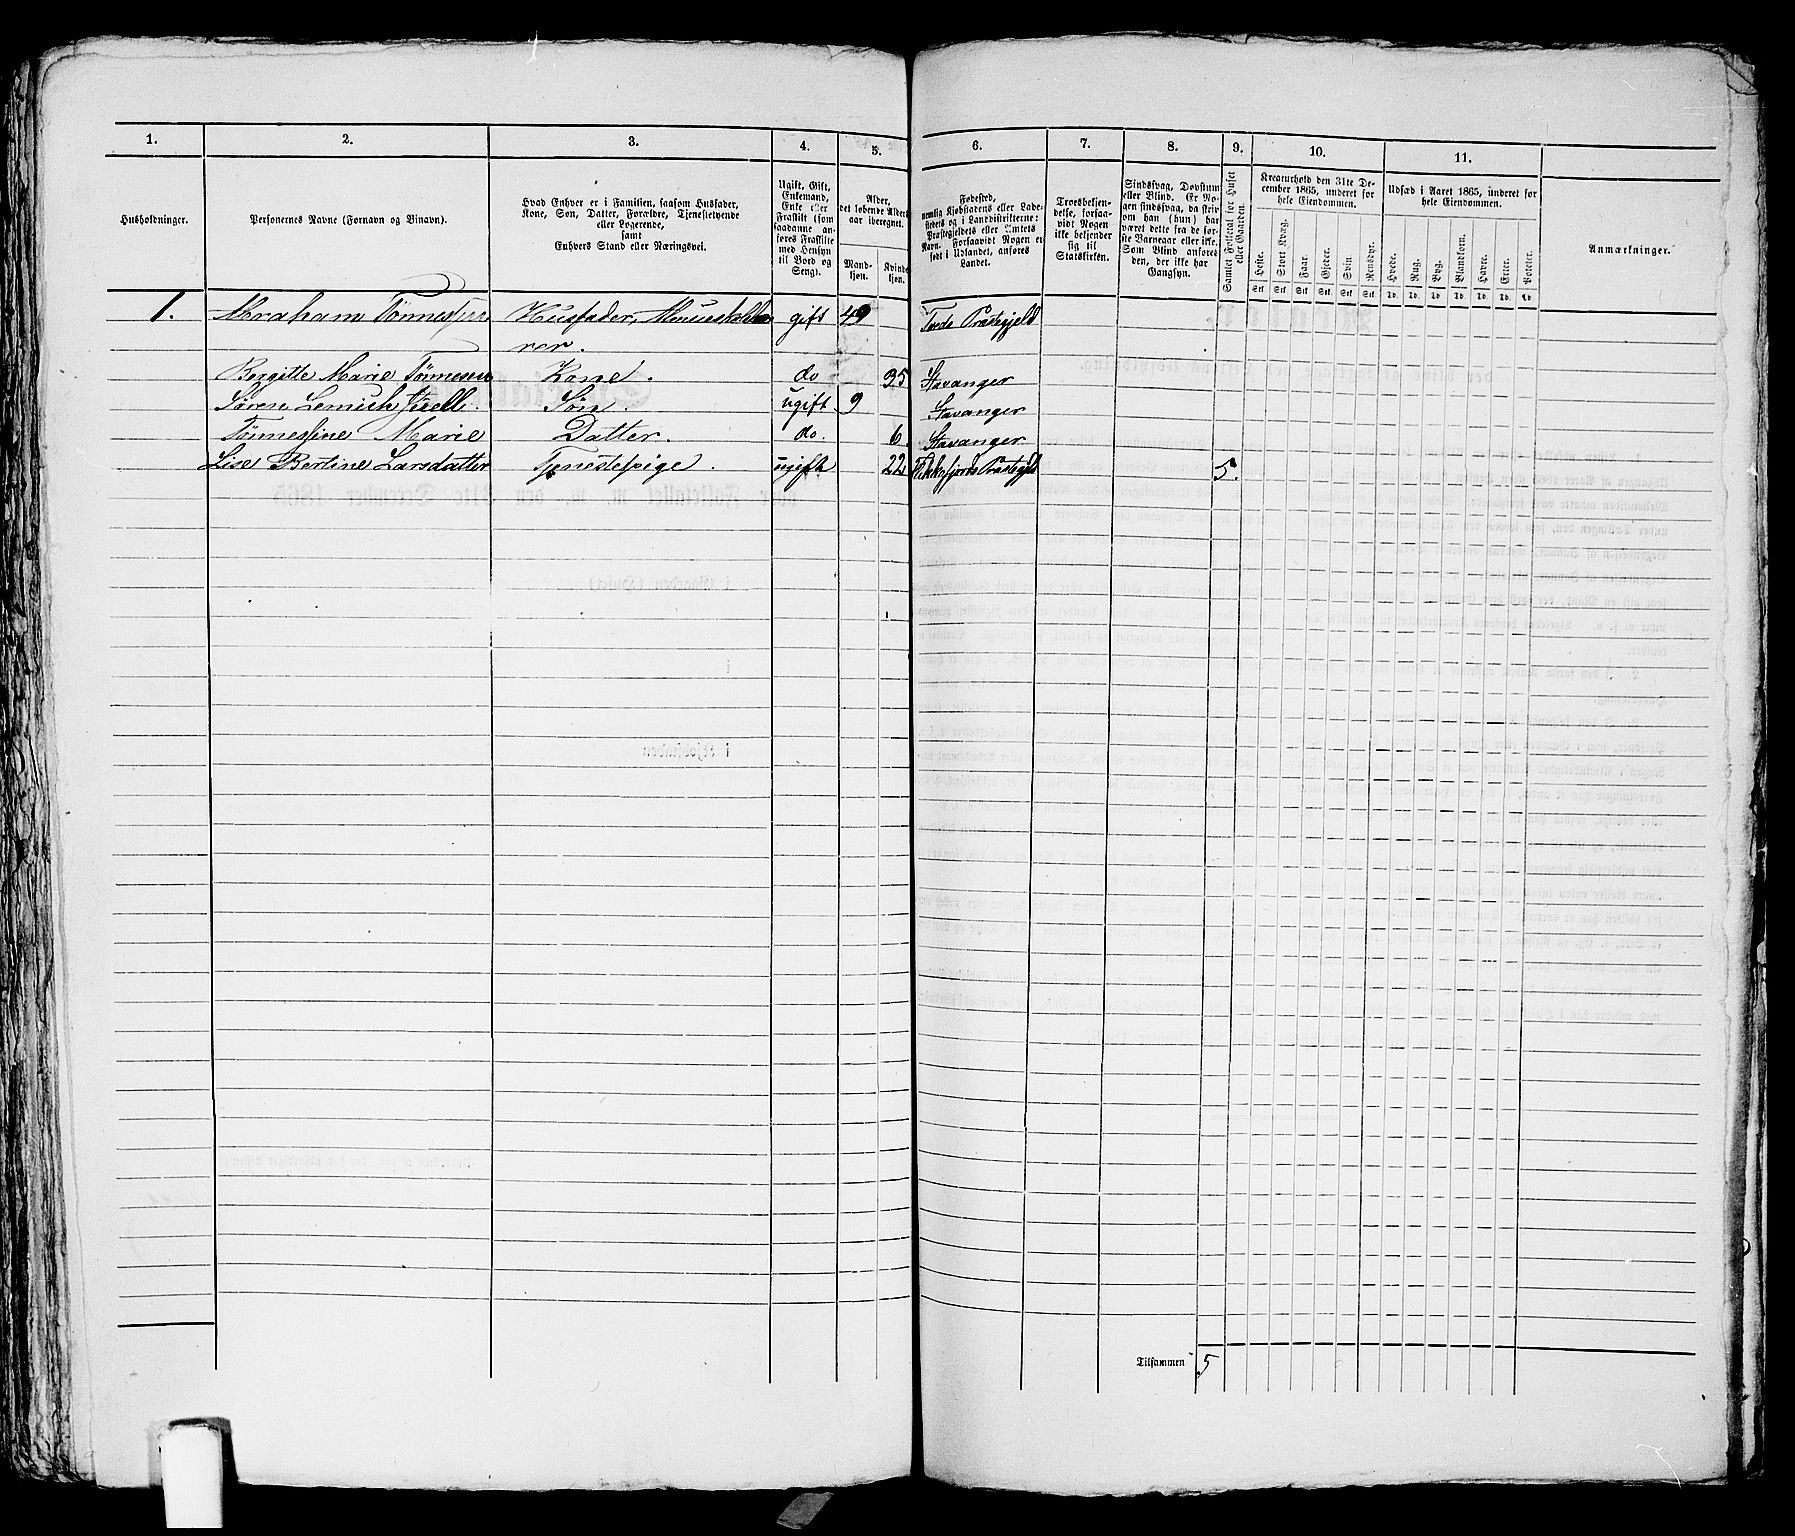 1.
2.
3.
4.
5.
6.
7.
8.
9.
10.
11.
Husholdninger.
Personernes Navne (Fornavn og Binavn).
Hvad Enhver er i Familien, saasom Husfader,
Kone, Søn, Datter, Forældre, Tjenestetyende
eller Logerende,
samt
Enhvers Stand eller Næringsvei.
Ugift, Gift,
Enkemand,
Enke eller
Fraskilt (som
saadanne an-
føres Fraskilte
med Hensyn
til Bord og
Seng).
Alder,
det løbende Alders-
aar iberegnet.
Mand-
kjøn.
Kvinde-
kjøn.
Fødested,
nemlig Kjøbstadens eller Lade-
stedets og i Landdistrikterne:
Præstegjeldets eller Amtets
Navn. Forsaavidt Nogen er
født i Udlandet, anføres
Landet.
Troesbekjen-
delse, forsaa-
vidt Nogen
ikke bekjender
sig til
Statskirken.
Sindssvag, Døvstum
eller Blind. Er No-
gen sindssvag, da skriv
om han (hun) har
været dette fra de før-
ste Barneaar eller ikke.
Som Blind anføres
den, der ikke har
Gangsyn.
Samlet Folketal for Huset
eller Gaarden.
Kreaturhold den 31te De-
cember 1865, underet for
hele Eiendommen.
Heste. Stort Kvæg. Faar. Gjeder. Svin. Rensdyr.
Stk. Stk. Stk. Stk. Stk. Stk.
Udsæd i Aaret 1865, underet for
hele Eiendommen.
Hvede. Rug. Byg. Blandkorn. Havre. Erter. Poteter.
Td. Td. Td. Td. Td. Td. Td.
Anmærkninger.
1. Abraham Husfader, gift 49 Præstegjeld
rer.
Bergitte Marie Kone. do 35 Stavanger
Søren Søn. ugift 9 Stavanger
Tønnesine Marie Datter. do. 6. Stavanger
Lise Bertine Larsdatter Tjenestepige. ugift 22 5.
Tilsammen 5